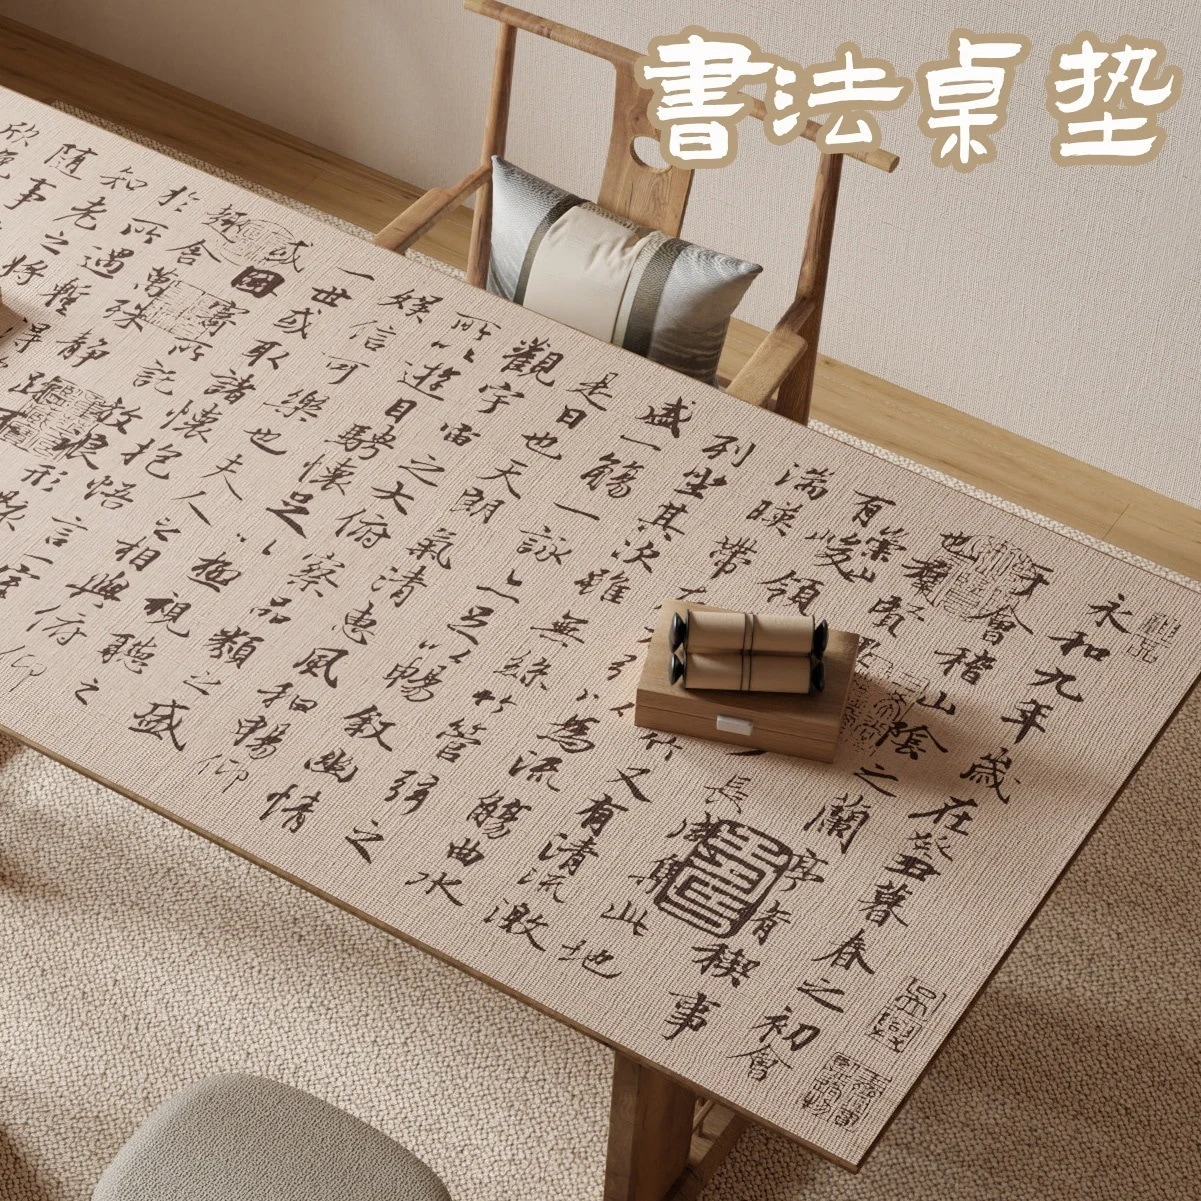 書法桌墊
永和九年歲在癸丑暮春之初會
于會稽山陰之蘭亭脩禊事
也羣賢
長咸集此地
有崇山峻領
竹又有清流激
湍暎帶左右引以為流觴曲水
列坐其次雖無絲竹管弦之
盛一觴一詠亦足以暢敘幽情
是日也天朗氣清惠風和暢仰
觀宇宙之大俯察品類之盛
所以遊目騁懷足以極視聽之
娛信可樂也夫人之相與俯仰
一世或取諸懷抱悟言一室
或因寄所託放浪形骸
趣舍萬殊靜躁
於所遇暫得
知老之將
隨事
欣